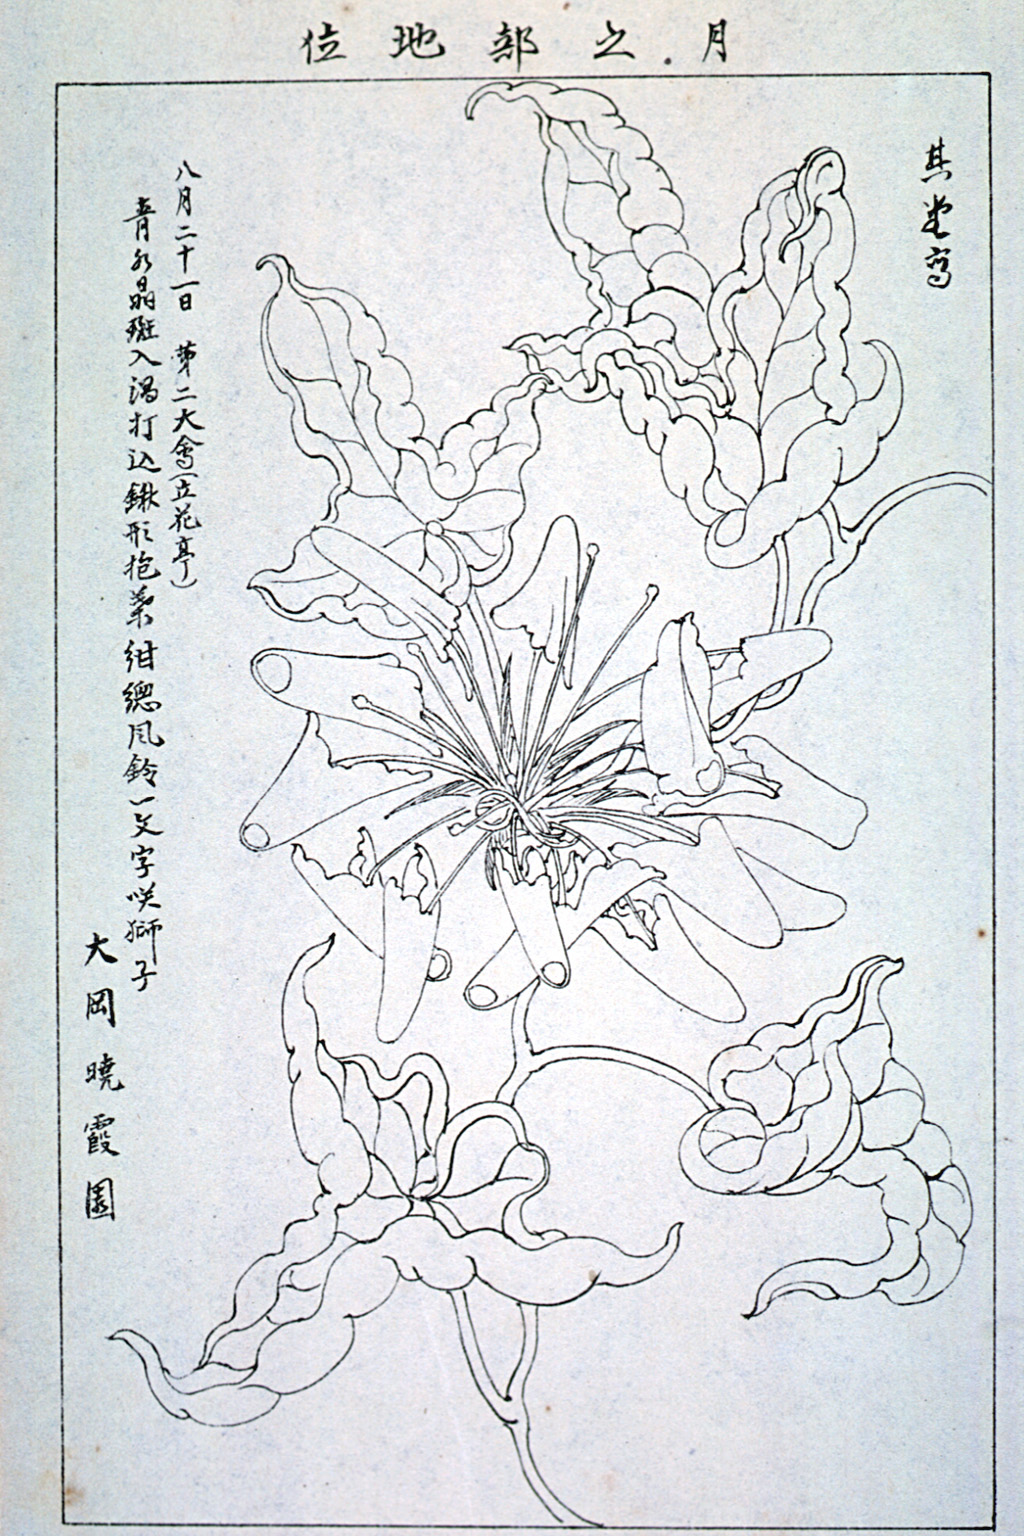 月之部地位
其堂寫
八月二十一日 第二大會(立花亭)
青水晶斑入渦打込鍬形抱葉紺總風鈴一文字咲獅子
大岡曉霞園